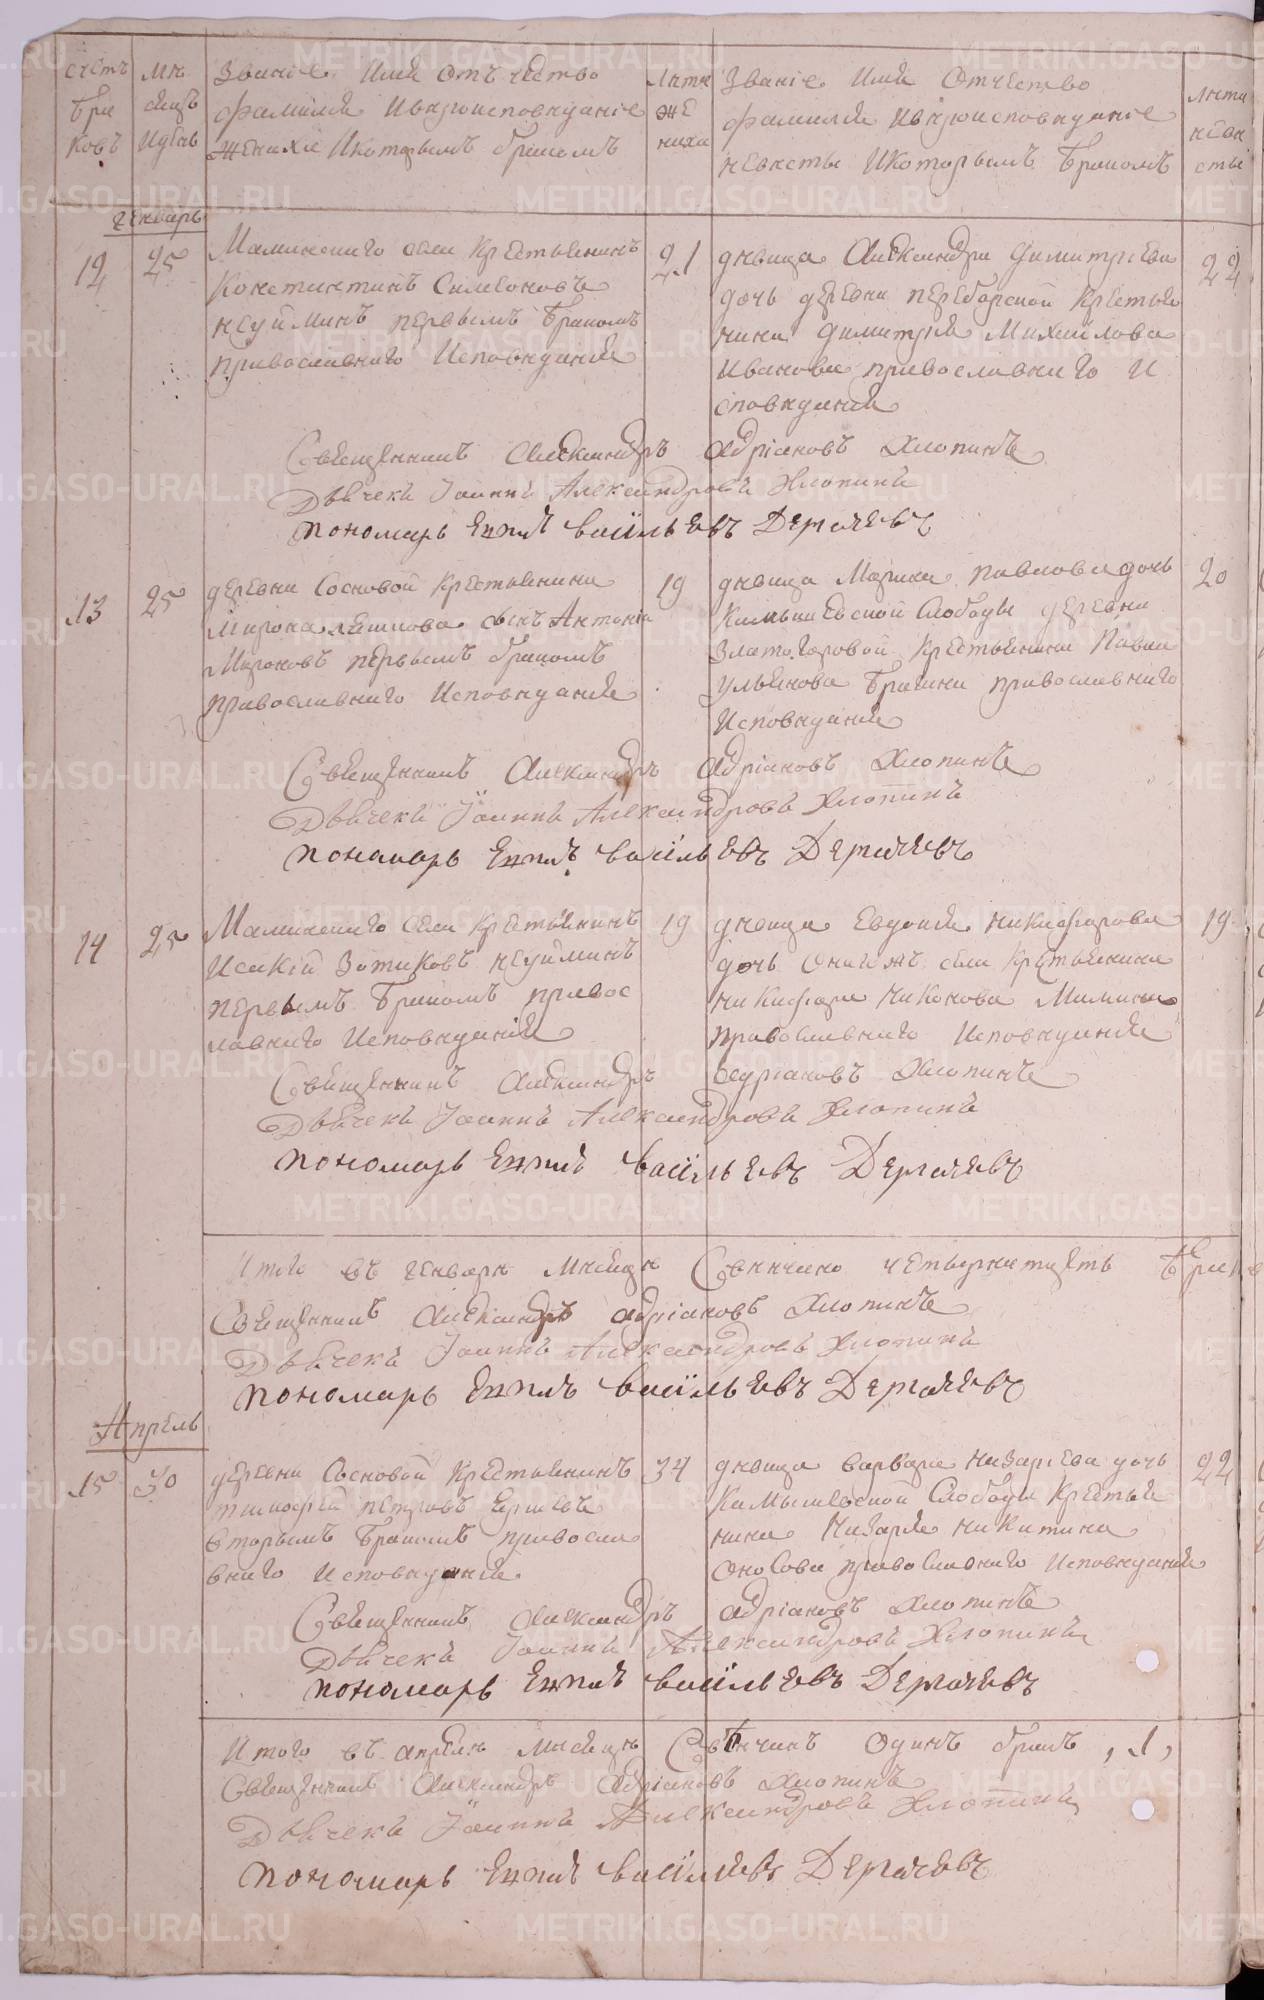 счетъ браковъ
мѣсяцъ идень
Званіе Имя Отъчество
фамилія Ивѣроисповѣданіе
жениха Икоторымъ бракомъ
лѣта жениха
Званіе Имя Отчество
фамилія Ивѣроисповѣданіе
невѣсты Икоторымъ бракомъ
лѣта невѣсты
генварь
12 25
Маминского села Крестьянинъ
Константинъ Симеоновъ
неуйминъ первымъ бракомъ
православнаго Исповѣданія
21
дѣвица Александра Димитріева
дочь деревни переборской Крестья
нина Димитрія Михайлова
Иванова православнаго И
споведанія
22
Священникъ Александръ Адріановъ Хлопинъ
Дьячекъ Іоаннъ Александровъ Хлопинъ
Пономарь Василь евъ Дергачевъ
13 25
деревни Сосновой Крестьянина
Мирона сынъ Антоній
Мироновъ первымъ бракомъ
православнаго Исповѣданія
19
дѣвица Марина Павлова дочь
Камышевской Слободы деревни
Златогоровой Крестьянина Павла
Ульянова православнаго
Исповѣданія
20
Священникъ Александръ Адріановъ Хлопинъ
Дьячекъ Іоаннъ Александровъ Хлопинъ
Пономарь Василь евъ Дергачевъ
14 25
Маминского села Крестьянинъ
Исакій Зотиковъ неуйминъ
первымъ бракомъ правос
лавнаго Исповѣданія
19
дѣвица Евдокія Никифорова
дочь села Крестьянина
Никифора Никонова Мамина
православнаго Исповѣданія
19
Священникъ Александръ Адріановъ Хлопинъ
Дьячекъ Іоаннъ Александровъ Хлопинъ
Пономарь Василь евъ Дергачевъ
Итого въ генварѣ мѣсяцѣ Свѣнчано четырнатцеть
Священникъ Александръ Адріановъ Хлопинъ
Дьячекъ Іоаннъ Александровъ Хлопинъ
Пономарь Василь евъ Дергачевъ
Апрель
15 30
деревни Сосновой Крестьянинъ
тимофей петровъ
вторымъ бракомъ правосла
внаго Исповѣданія
34
дѣвица варвара Назарьева дочь
Камышевской Слободы Крестья
нина Назарія Никитина
православнаго Исповѣданія
22
Священникъ Александръ Адріановъ Хлопинъ
Дьячекъ Іоаннъ Александровъ Хлопинъ
Пономарь Василь евъ Дергачевъ
Итого въ апрелѣ мѣсяцѣ Свѣнчанъ Одинъ бракъ , 1 ,
Священникъ Александръ Адріановъ Хлопинъ
Дьячекъ Іоаннъ Александровъ Хлопинъ
Пономарь Васильевъ Дергачевъ
METRIKI.GASO-URAL.RU